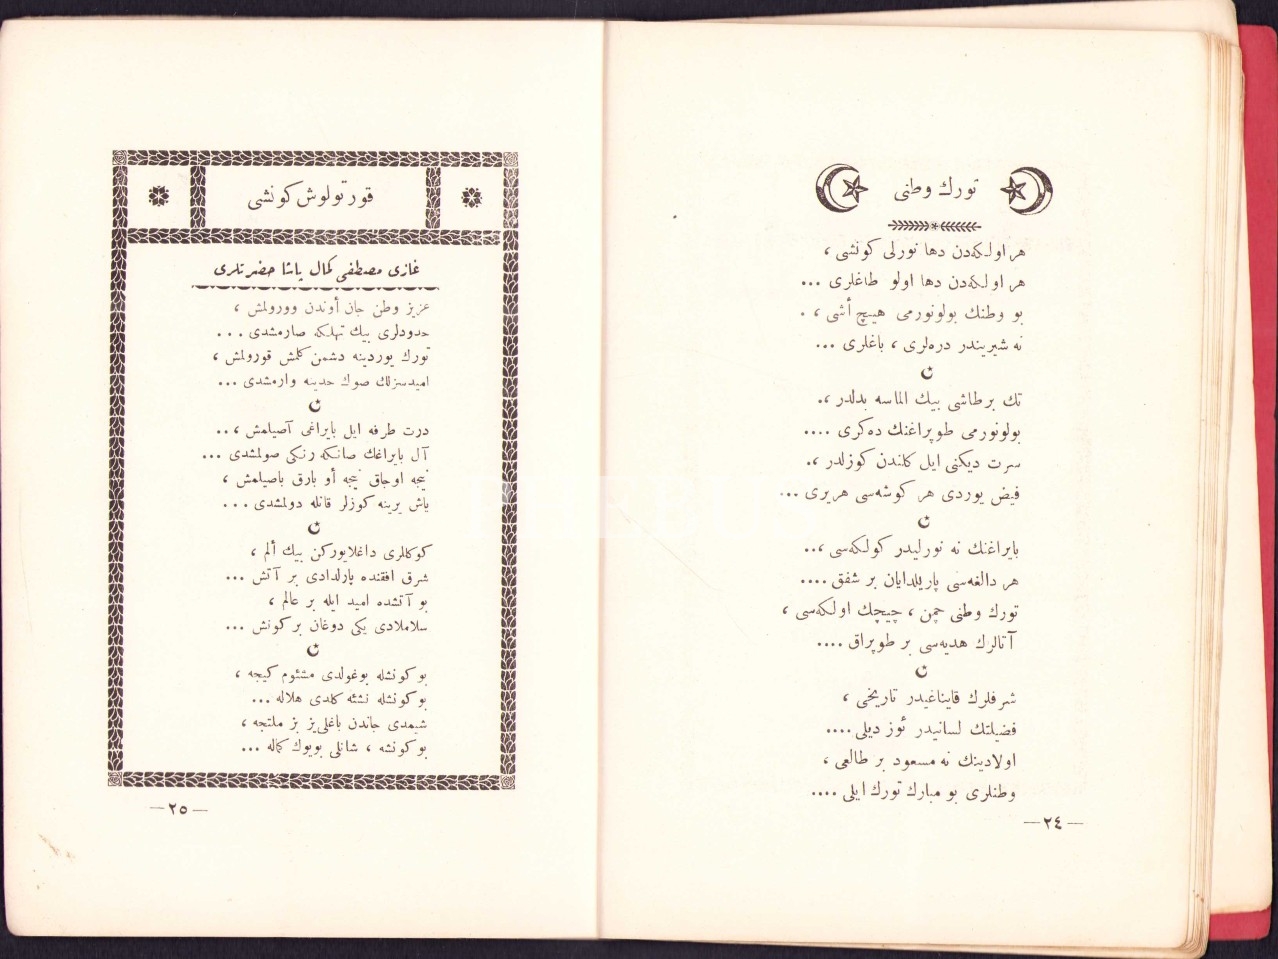 تورك وطنی
هر اولكه‌دن دها نورلی كونشی ،
هر اولكه‌دن دها اولو طاغلری ...
بو وطنك بولونورمی هیچ أشی ، .
نه شیریندر دره‌لری ، باغلری ...
تك بر طاشی بیك الماسه بدلدر ،.
بولونورمی طوپراغنك ده‌كری ....
سرت دیكنی ایل كلندن كوزلدر ،.
فیض یوردی هر كوشه‌سی هریری ...
بایراغنك نه نورلیدر كولكه‌سی ،..
هر دالغه‌سی پاریلدایان بر شفق ....
تورك وطنی چمن ، چیچك اولكه‌سی ،
آتالرك هدیه‌سی بر طوپراق ....
شرفلرك قایناغیدر تاریخی ،
فضیلتك لسانیدر ئوز دیلی ....
اولادینك نه مسعود بر طالعی ،
وطنلری بو مبارك تورك ایلی ....
— ٢٤ —
قورتولوش كونشی
غازی مصطفی كمال پاشا حضرتلری
عزیز وطن جان أوندن وورولمش ،
حدودلری بیك تهلكه صارمشدی ...
تورك یوردینه دشمن كلمش قورولمش ،
امیدسزلك صوك حدینه وارمشدی ...
درت طرفه ایل بایراغی آصیلمش ،..
آل بایراغك صانكه رنكی صولمشدی ...
نیجه اوجاق نیجه أو بارق باصیلمش ،
یاش یرینه كوزلر قانله دولمشدی ...
كوكللری داغلایوركن بیك ألم ،
شرق افقنده پارلدادی بر آتش ...
بو آتشده امید ایله بر عالم ،
سلاملادی یكی دوغان بر كونش ...
بو كونشله بوغولدی مشئوم كیجه ،
بو كونشله نشئه كلدی هلاله ...
شیمدی جاندن باغلی‌یز بز ملتجه ،
بو كونشه ، شانلی بویوك كماله ...
— ٢٥ —